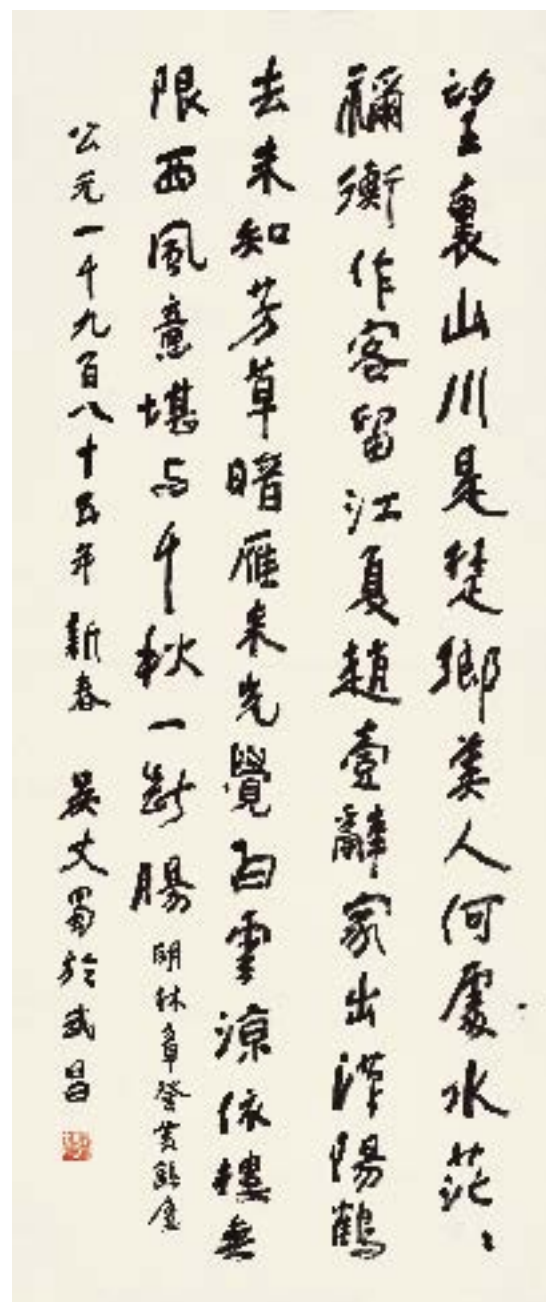 望裏山川是楚鄉美人何處水茫〻
禰衡作客留江夏趙壹辭家出漢陽鶴
去未知芳草暗雁來先覺白雲涼依樓無
限西風意堪与千秋一斷腸 明林章登黄鶴樓
公元一千九百八十五年新春 吴丈蜀於武昌